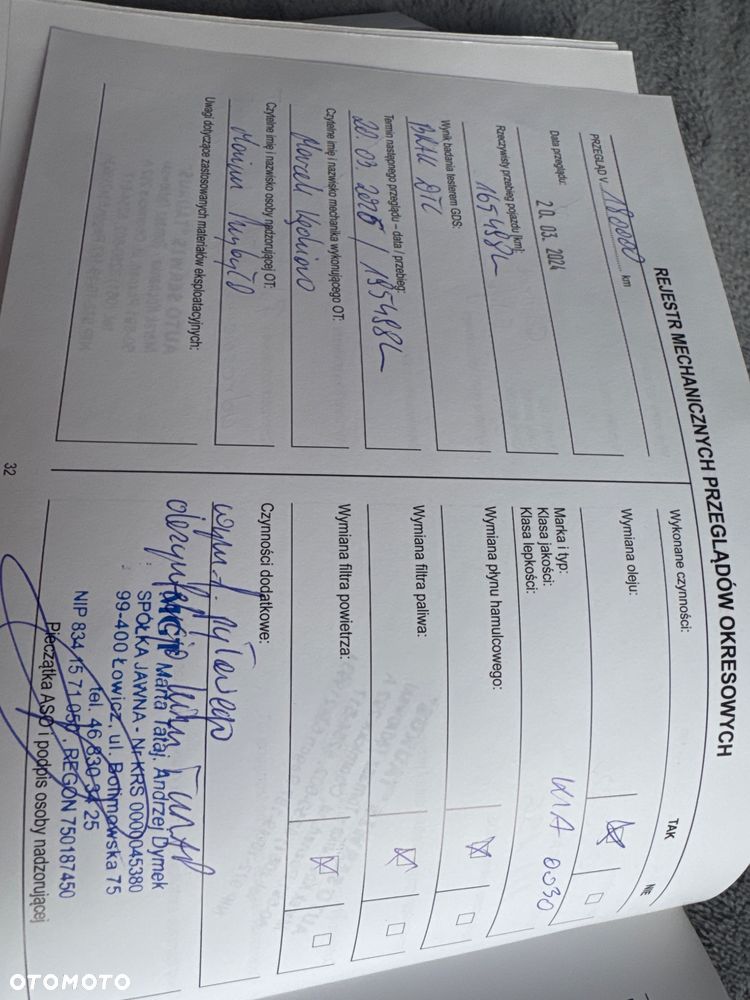 REJESTR MECHANICZNYCH PRZEGLĄDÓW OKRESOWYCH
PRZEGLĄD V 180000 km
Data przeglądu:
20. 03. 2024
Rzeczywisty przebieg pojazdu [km]:
165488
Wynik badania testerem GDS:
BRAK DTC
Termin następnego przeglądu – data / przebieg:
20. 03. 2026 / 195488
Czytelne imię i nazwisko mechanika wykonującego OT:
Marek
Czytelne imię i nazwisko osoby nadzorującej OT:
Uwagi dotyczące zastosowanych materiałów eksploatacyjnych:
32
Wykonane czynności:
TAK
NIE
Wymiana oleju:
Marka i typ:
Klasa jakości:
Klasa lepkości:
KIA 0W30
Wymiana płynu hamulcowego:
Wymiana filtra paliwa:
Wymiana filtra powietrza:
Czynności dodatkowe:
wym. f. pyłowego
MGT Marta Tataj, Andrzej Dymek
SPÓŁKA JAWNA - Nr KRS 0000045380
99-400 Łowicz, ul. Bolimowska 75
tel. 46 830 34 25
NIP 834 15 71 050, REGON 750187450
Pieczątka ASO i podpis osoby nadzorującej
OTOMOTO